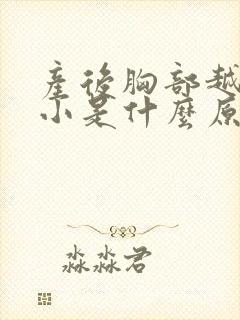 產後胸部越
小是什麼原
淼淼君